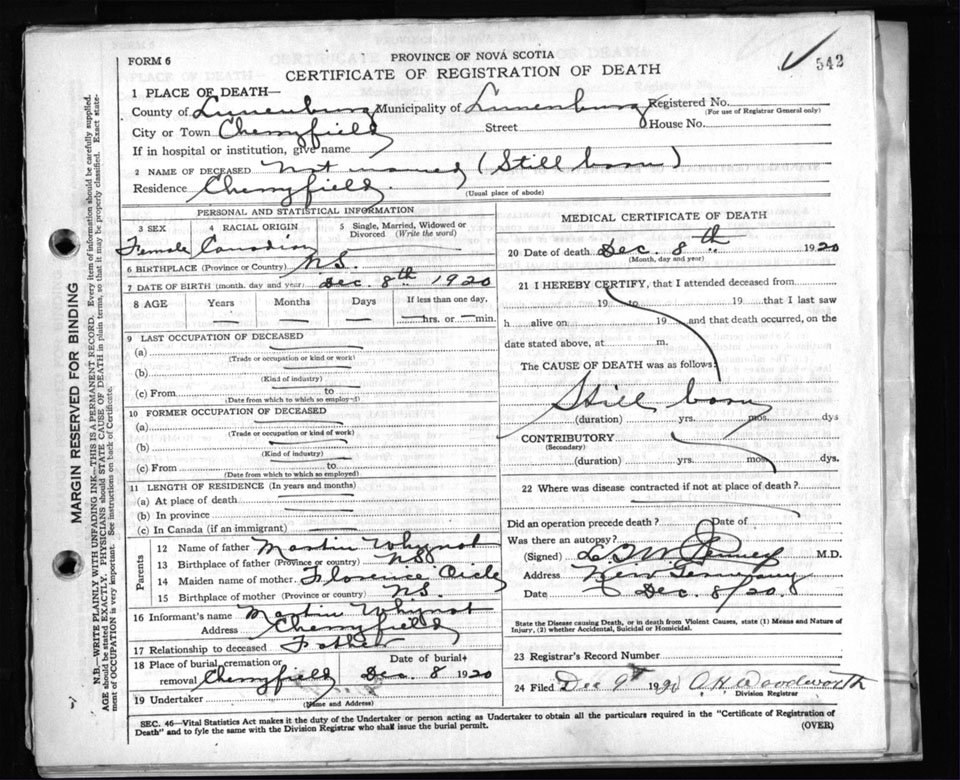 FORM 6
PROVINCE OF NOVA SCOTIA
CERTIFICATE OF REGISTRATION OF DEATH
542
1 PLACE OF DEATH—
County of Lunenburg Municipality of Lunenburg Registered No.
(For use of Registrar General only)
City or Town Cherryfield Street House No.
If in hospital or institution, give name
2 NAME OF DECEASED Not named (Still born)
Residence Cherryfield.
(Usual place of abode)
PERSONAL AND STATISTICAL INFORMATION
3 SEX 4 RACIAL ORIGIN 5 Single, Married, Widowed or Divorced (Write the word)
Female Canadian
6 BIRTHPLACE (Province or Country) N.S.
7 DATE OF BIRTH (month, day and year) Dec. 8th 1920
8 AGE Years Months Days If less than one day,
— — — — hrs. or — min.
9 LAST OCCUPATION OF DECEASED
(a)
(Trade or occupation or kind or work)
(b)
(Kind of industry)
(c) From to
(Date from which to which so employed)
10 FORMER OCCUPATION OF DECEASED
(a)
(Trade or occupation or kind of work)
(b)
(Kind of industry)
(c) From to
(Date from which to which so employed)
11 LENGTH OF RESIDENCE (In years and months)
(a) At place of death
(b) In province
(c) In Canada (if an immigrant)
Parents
12 Name of father Martin Whynot
13 Birthplace of father (Province or country) N.S.
14 Maiden name of mother Florence
15 Birthplace of mother (Province or country) N.S.
16 Informant's name Martin Whynot
Address Cherryfield
17 Relationship to deceased Father
18 Place of burial, cremation or removal Cherryfield Date of burial Dec. 8 1920
19 Undertaker
(Name and Address)
MEDICAL CERTIFICATE OF DEATH
20 Date of death Dec. 8th 1920
(Month, day and year)
21 I HEREBY CERTIFY, that I attended deceased from
19 to 19 that I last saw
h alive on 19 and that death occurred, on the
date stated above, at m.
The CAUSE OF DEATH was as follows:
Still born
(duration) yrs. mos. dys
CONTRIBUTORY
(Secondary)
(duration) yrs. mos. dys.
22 Where was disease contracted if not at place of death?
Did an operation precede death? Date of
Was there an autopsy?
(Signed) Penney M.D.
Address New Germany
Date Dec. 8/20.
State the Disease causing Death, or in death from Violent Causes, state (1) Means and Nature of
Injury, (2) whether Accidental, Suicidal or Homicidal.
23 Registrar's Record Number
24 Filed Dec 9th 1920 O.H. Woodworth
Division Registrar
SEC. 46—Vital Statistics Act makes it the duty of the Undertaker or person acting as Undertaker to obtain all the particulars required in the "Certificate of Registration of
Death" and to fyle the same with the Division Registrar who shall issue the burial permit. (OVER)
MARGIN RESERVED FOR BINDING
N.B.—WRITE PLAINLY WITH UNFADING INK—THIS IS A PERMANENT RECORD. Every item of information should be carefully supplied.
AGE should be stated EXACTLY. PHYSICIANS should STATE CAUSE OF DEATH in plain terms, so that it may be properly classified. Exact state-
ment of OCCUPATION is very important. See instructions on back of Certificate.